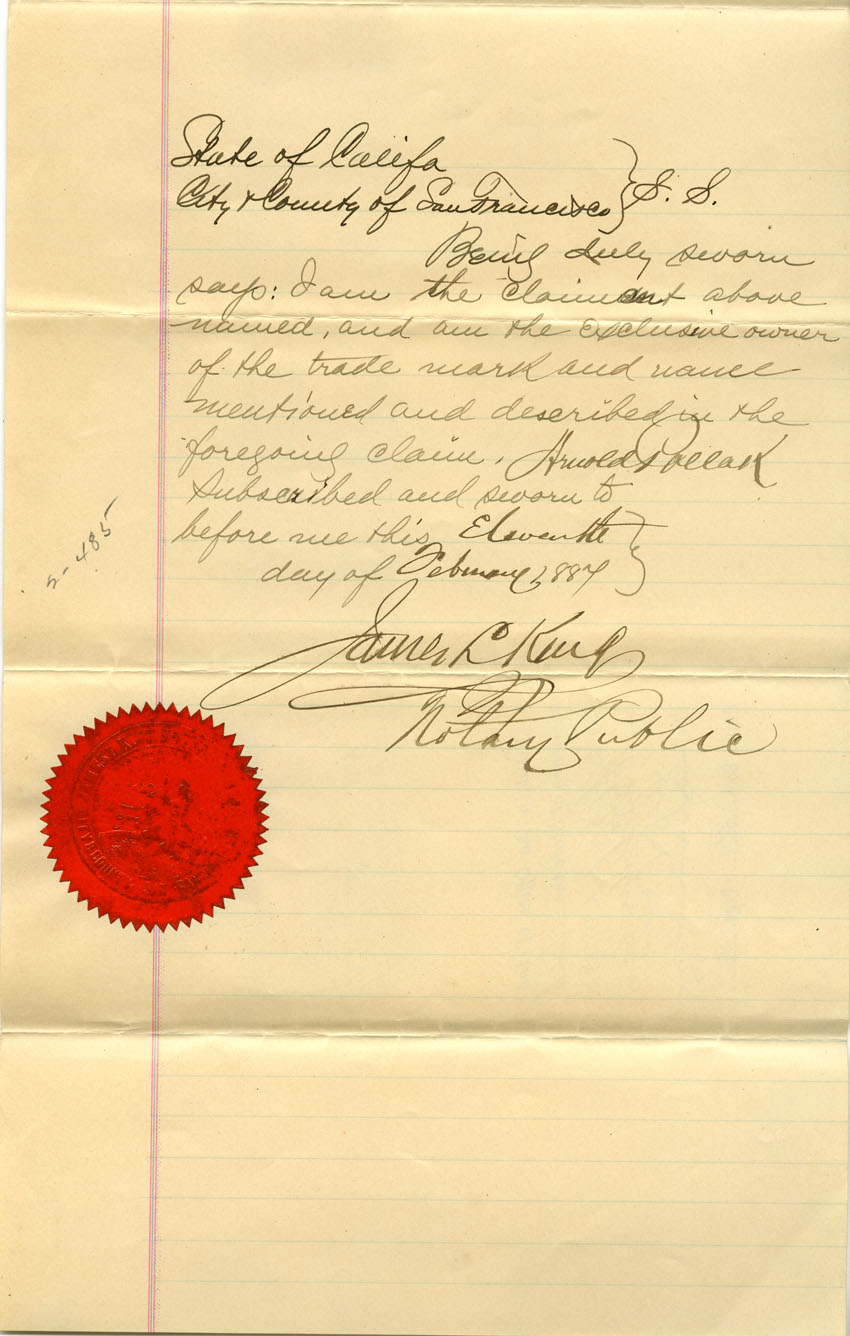 State of Califa
City & County of San Francisco } S. S.
Being duly sworn
says: I am the claimant above
named, and am the exclusive owner
of the trade mark and name
mentioned and described in the
foregoing claim. Arnold Pollak
Subscribed and sworn to
before me this Eleventh
day of February 1887 }
James L King
Notary Public
2-485